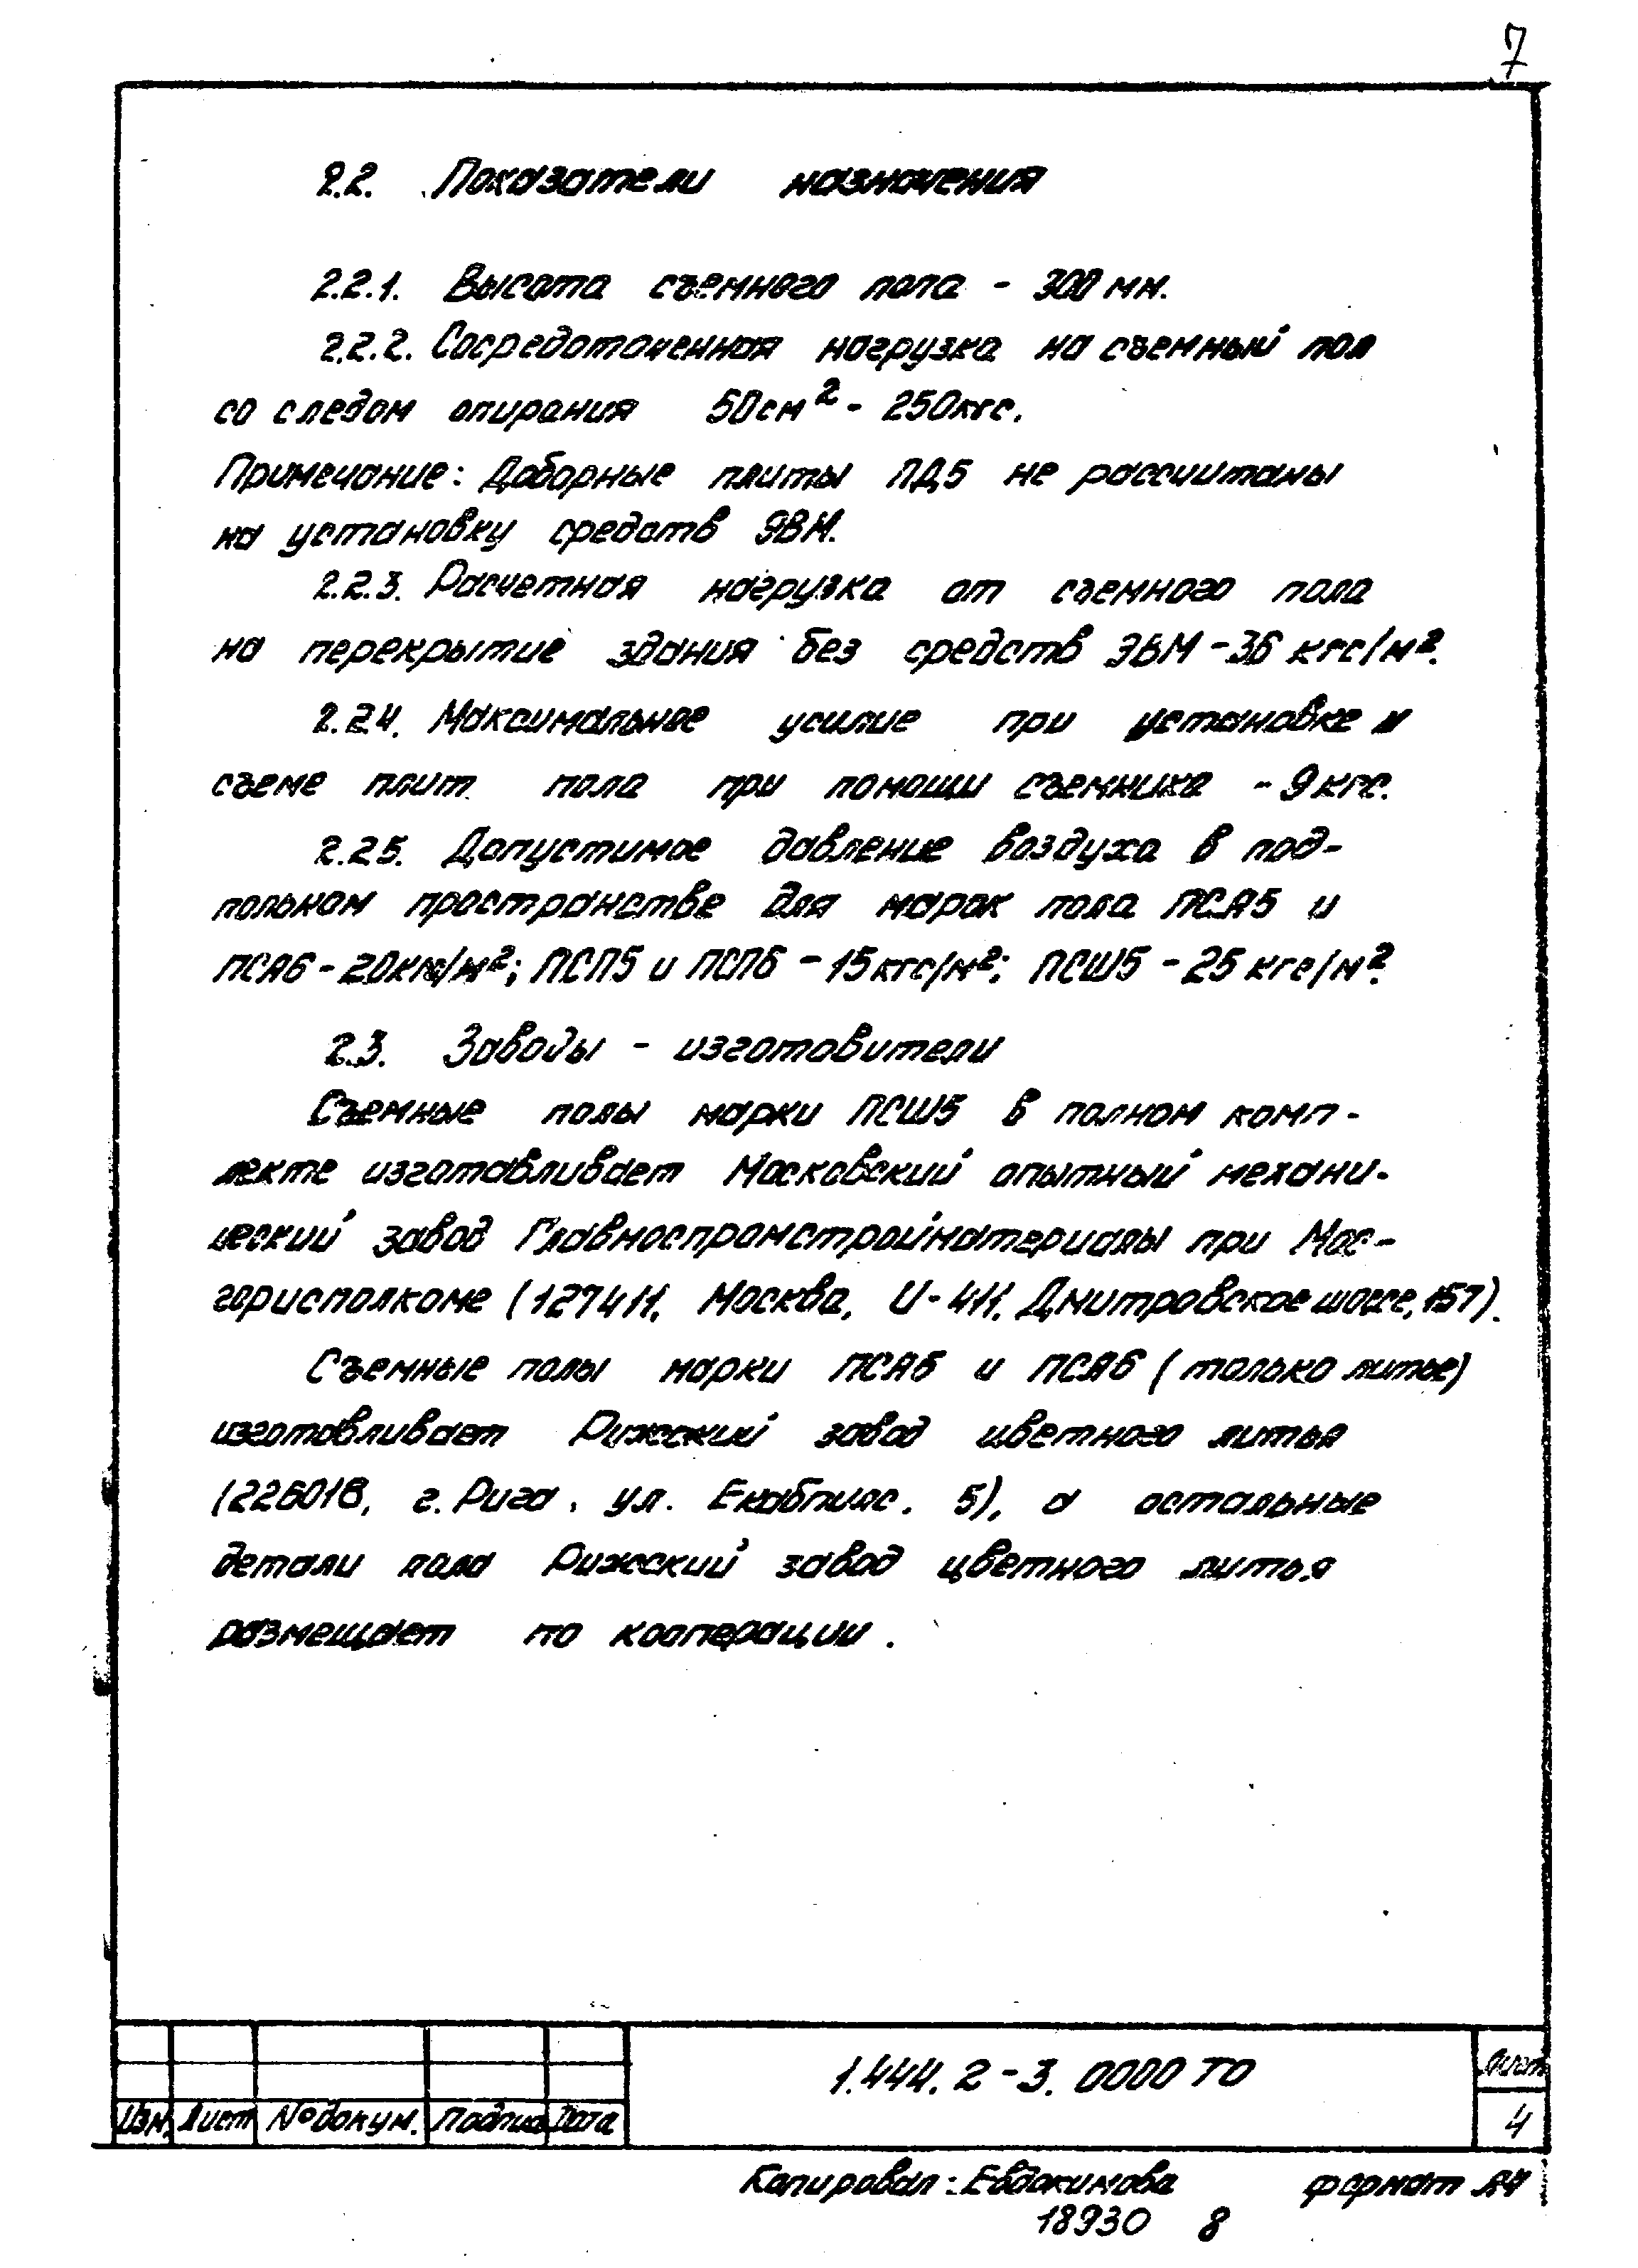 7
2.2. Показатели назначения
2.2.1. Высота съемного пола - 300 мм.
2.2.2. Сосредоточенная нагрузка на съемный пол
со следом опирания 50 см² - 250 кгс.
Примечание: Доборные плиты ПД5 не рассчитаны
на установку средств ЭВМ.
2.2.3. Расчетная нагрузка от съемного пола
на перекрытие здания без средств ЭВМ - 36 кгс/м².
2.2.4. Максимальное усилие при установке и
съеме плит пола при помощи съемника - 9 кгс.
2.2.5. Допустимое давление воздуха в под-
польном пространстве для марок пола ПСА5 и
ПСА6 - 20 кгс/м²; ПСП5 и ПСП6 - 15 кгс/м²; ПСШ5 - 25 кгс/м².
2.3. Заводы - изготовители
Съемные полы марки ПСШ5 в полном комп-
лекте изготавливает Московский опытный механи-
ческий завод Главмоспромстройматериалы при Мос-
горисполкоме (127411, Москва, И-411, Дмитровское шоссе, 157).
Съемные полы марки ПСА5 и ПСА6 (только литье)
изготовливает Рижский завод цветного литья
(226018, г. Рига, ул. Екабпилс, 5), а остальные
детали пола Рижский завод цветного литья
размещает по кооперации.
1.444.2-3.0000 ТО
Лист
Изм. Лист № докум. Подпись Дата
4
Копировал: Евдокимова формат А4
18930 8